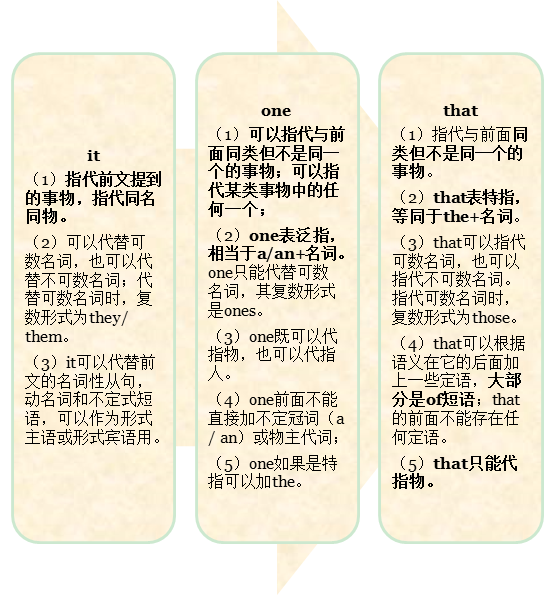 it
（1）指代前文提到
的事物，指代同名
同物。
（2）可以代替可
数名词，也可以代
替不可数名词；代
替可数名词时，复
数形式为they/
them。
（3）it可以代替前
文的名词性从句，
动名词和不定式短
语，可以作为形式
主语或形式宾语用。
one
（1）可以指代与前
面同类但不是同一
个的事物；可以指
代某类事物中的任
何一个；
（2）one表泛指，
相当于a/an+名词。
one只能代替可数
名词，其复数形式
是ones。
（3）one既可以代
指物，也可以代指
人。
（4）one前面不能
直接加不定冠词（a
/ an）或物主代词；
（5）one如果是特
指可以加the。
that
（1）指代与前面同
类但不是同一个的
事物。
（2）that表特指，
等同于the+名词。
（3）that可以指代
可数名词，也可以
指代不可数名词。
指代可数名词时，
复数形式为those。
（4）that可以根据
语义在它的后面加
上一些定语，大部
分是of短语；that
的前面不能存在任
何定语。
（5）that只能代
指物。